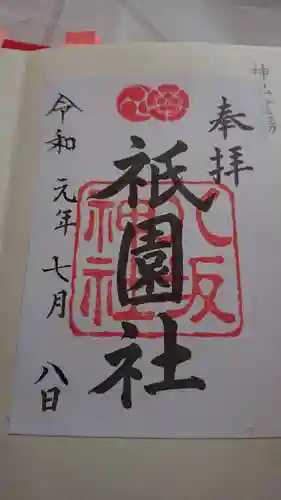 奉拝
八坂神社
祇園社
令和元年七月八日